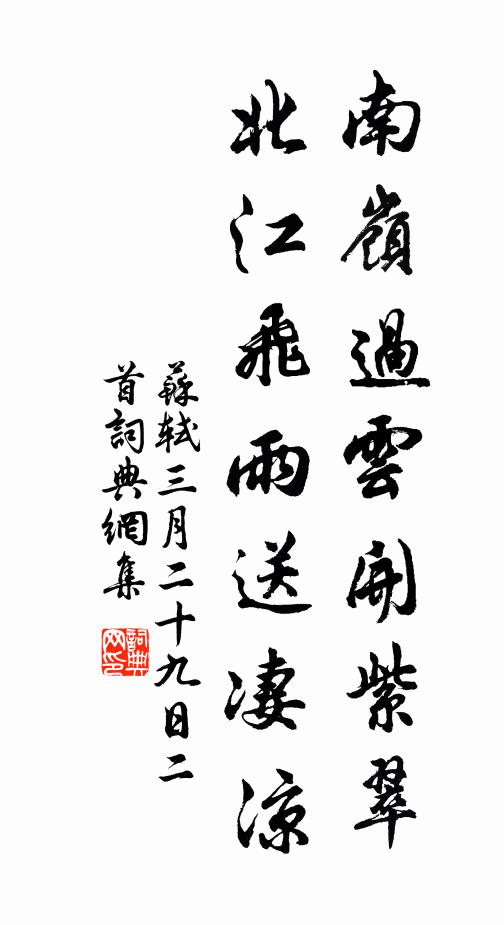 南嶺過雲開紫翠
北江飛雨送凄涼
蘇軾三月二十九日二
首詞典網集
詞典
网印